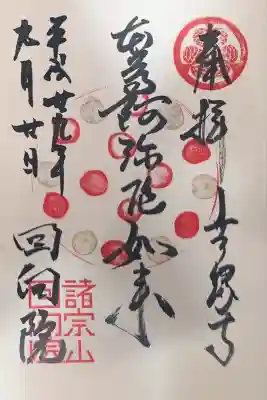 奉拝
本尊阿弥陀如来
平成廿九年
九月廿日
回向院
諸宗山
回向院